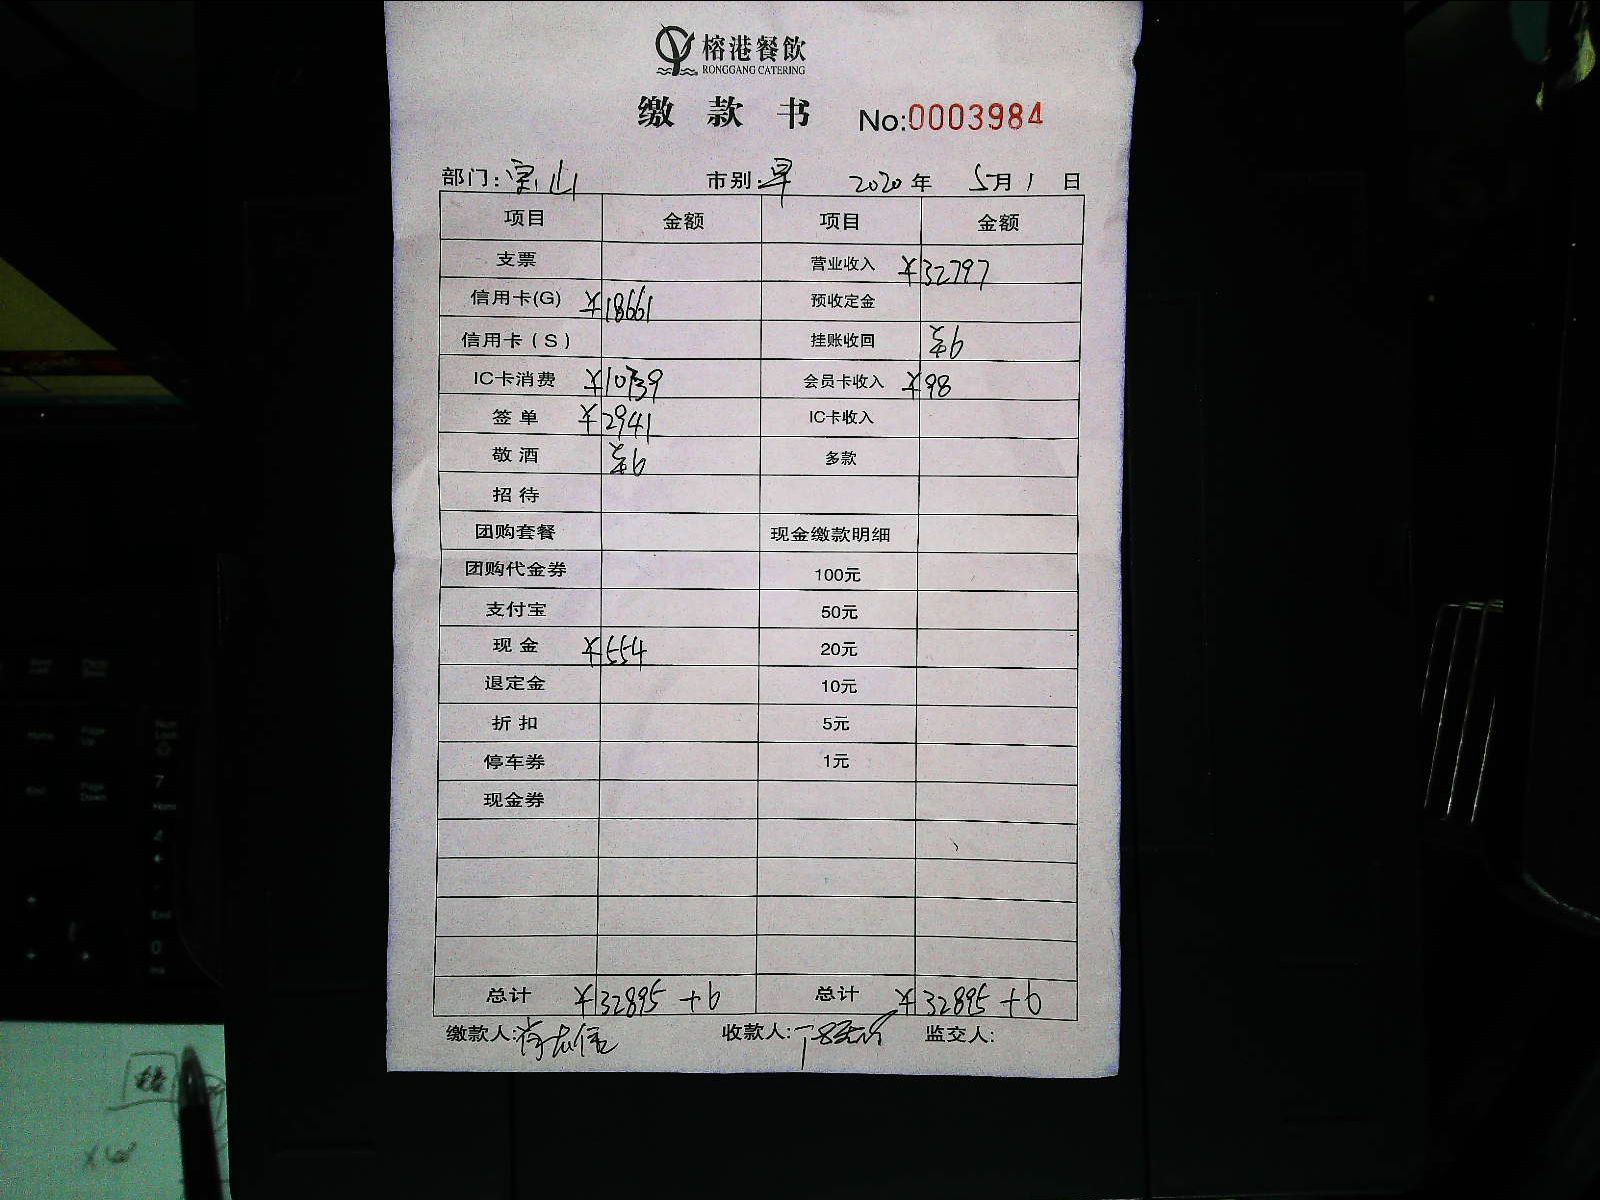 榕港餐飲
RONGGANG CATERING
缴款书 No:0003984
部门:宝山 市别:早 2020年 5月1日
项目 金额 项目 金额
支票 营业收入 ¥32797
信用卡(G) ¥18661 预收定金
信用卡(S) 挂账收回 6
IC卡消费 ¥10739 会员卡收入 ¥98
签单 ¥2941 IC卡收入
敬酒 6 多款
招待
团购套餐 现金缴款明细
团购代金券 100元
支付宝 50元
现金 ¥554 20元
退定金 10元
折扣 5元
停车券 1元
现金券
总计 ¥32895+6 总计 ¥32895+6
缴款人: 收款人: 监交人: